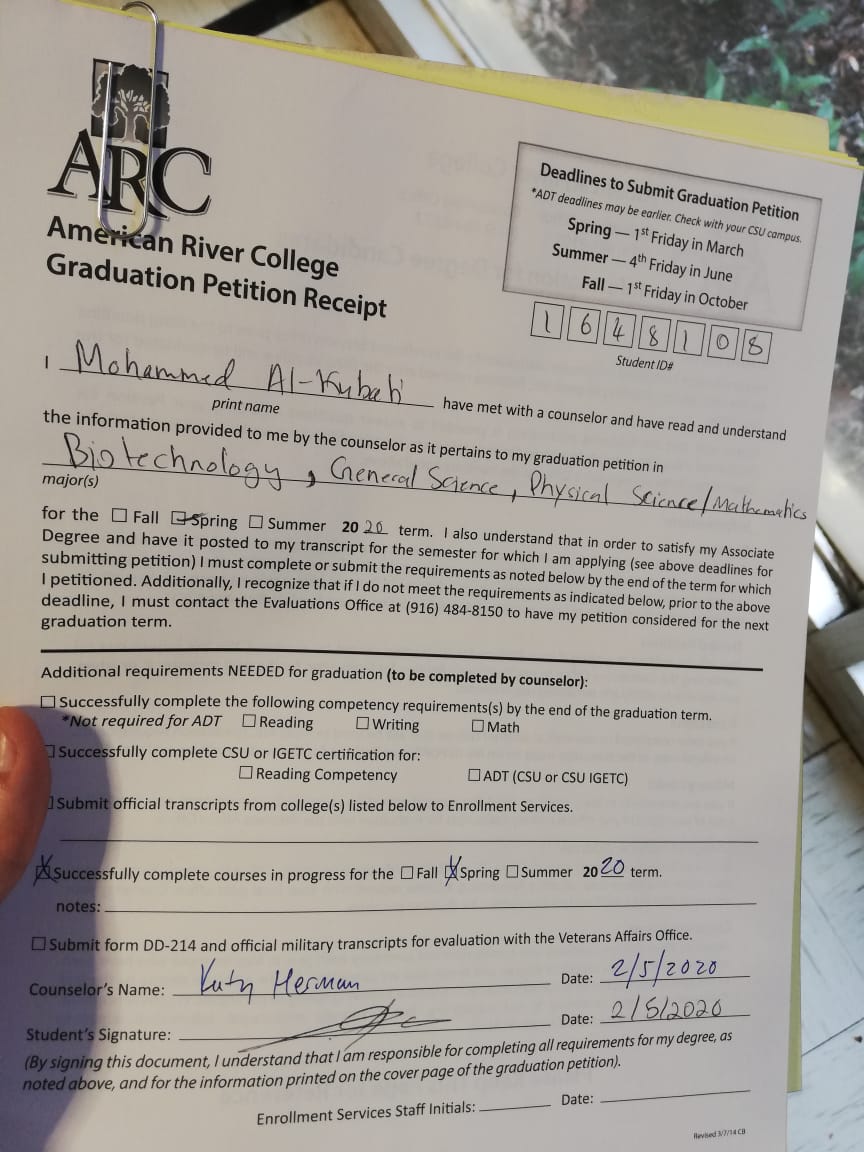 ARC
American River College
Graduation Petition Receipt
Deadlines to Submit Graduation Petition
*ADT deadlines may be earlier. Check with your CSU campus.
Spring — 1st Friday in March
Summer — 4th Friday in June
Fall — 1st Friday in October
1 6 4 8 1 0 8
Student ID#
I Mohammed Al-Kubati have met with a counselor and have read and understand
print name
the information provided to me by the counselor as it pertains to my graduation petition in
Biotechnology, General Science, Physical Science/Mathematics
major(s)
for the ☐ Fall ☒ Spring ☐ Summer 2020 term. I also understand that in order to satisfy my Associate
Degree and have it posted to my transcript for the semester for which I am applying (see above deadlines for
submitting petition) I must complete or submit the requirements as noted below by the end of the term for which
I petitioned. Additionally, I recognize that if I do not meet the requirements as indicated below, prior to the above
deadline, I must contact the Evaluations Office at (916) 484-8150 to have my petition considered for the next
graduation term.
Additional requirements NEEDED for graduation (to be completed by counselor):
☐ Successfully complete the following competency requirements(s) by the end of the graduation term.
*Not required for ADT ☐ Reading ☐ Writing ☐ Math
☐ Successfully complete CSU or IGETC certification for:
☐ Reading Competency ☐ ADT (CSU or CSU IGETC)
☐ Submit official transcripts from college(s) listed below to Enrollment Services.
☒ Successfully complete courses in progress for the ☐ Fall ☒ Spring ☐ Summer 2020 term.
notes:
☐ Submit form DD-214 and official military transcripts for evaluation with the Veterans Affairs Office.
Counselor's Name: Herman Date: 2/5/2020
Student's Signature: Date: 2/5/2020
(By signing this document, I understand that I am responsible for completing all requirements for my degree, as
noted above, and for the information printed on the cover page of the graduation petition).
Enrollment Services Staff Initials: Date:
Revised 3/7/14 CB